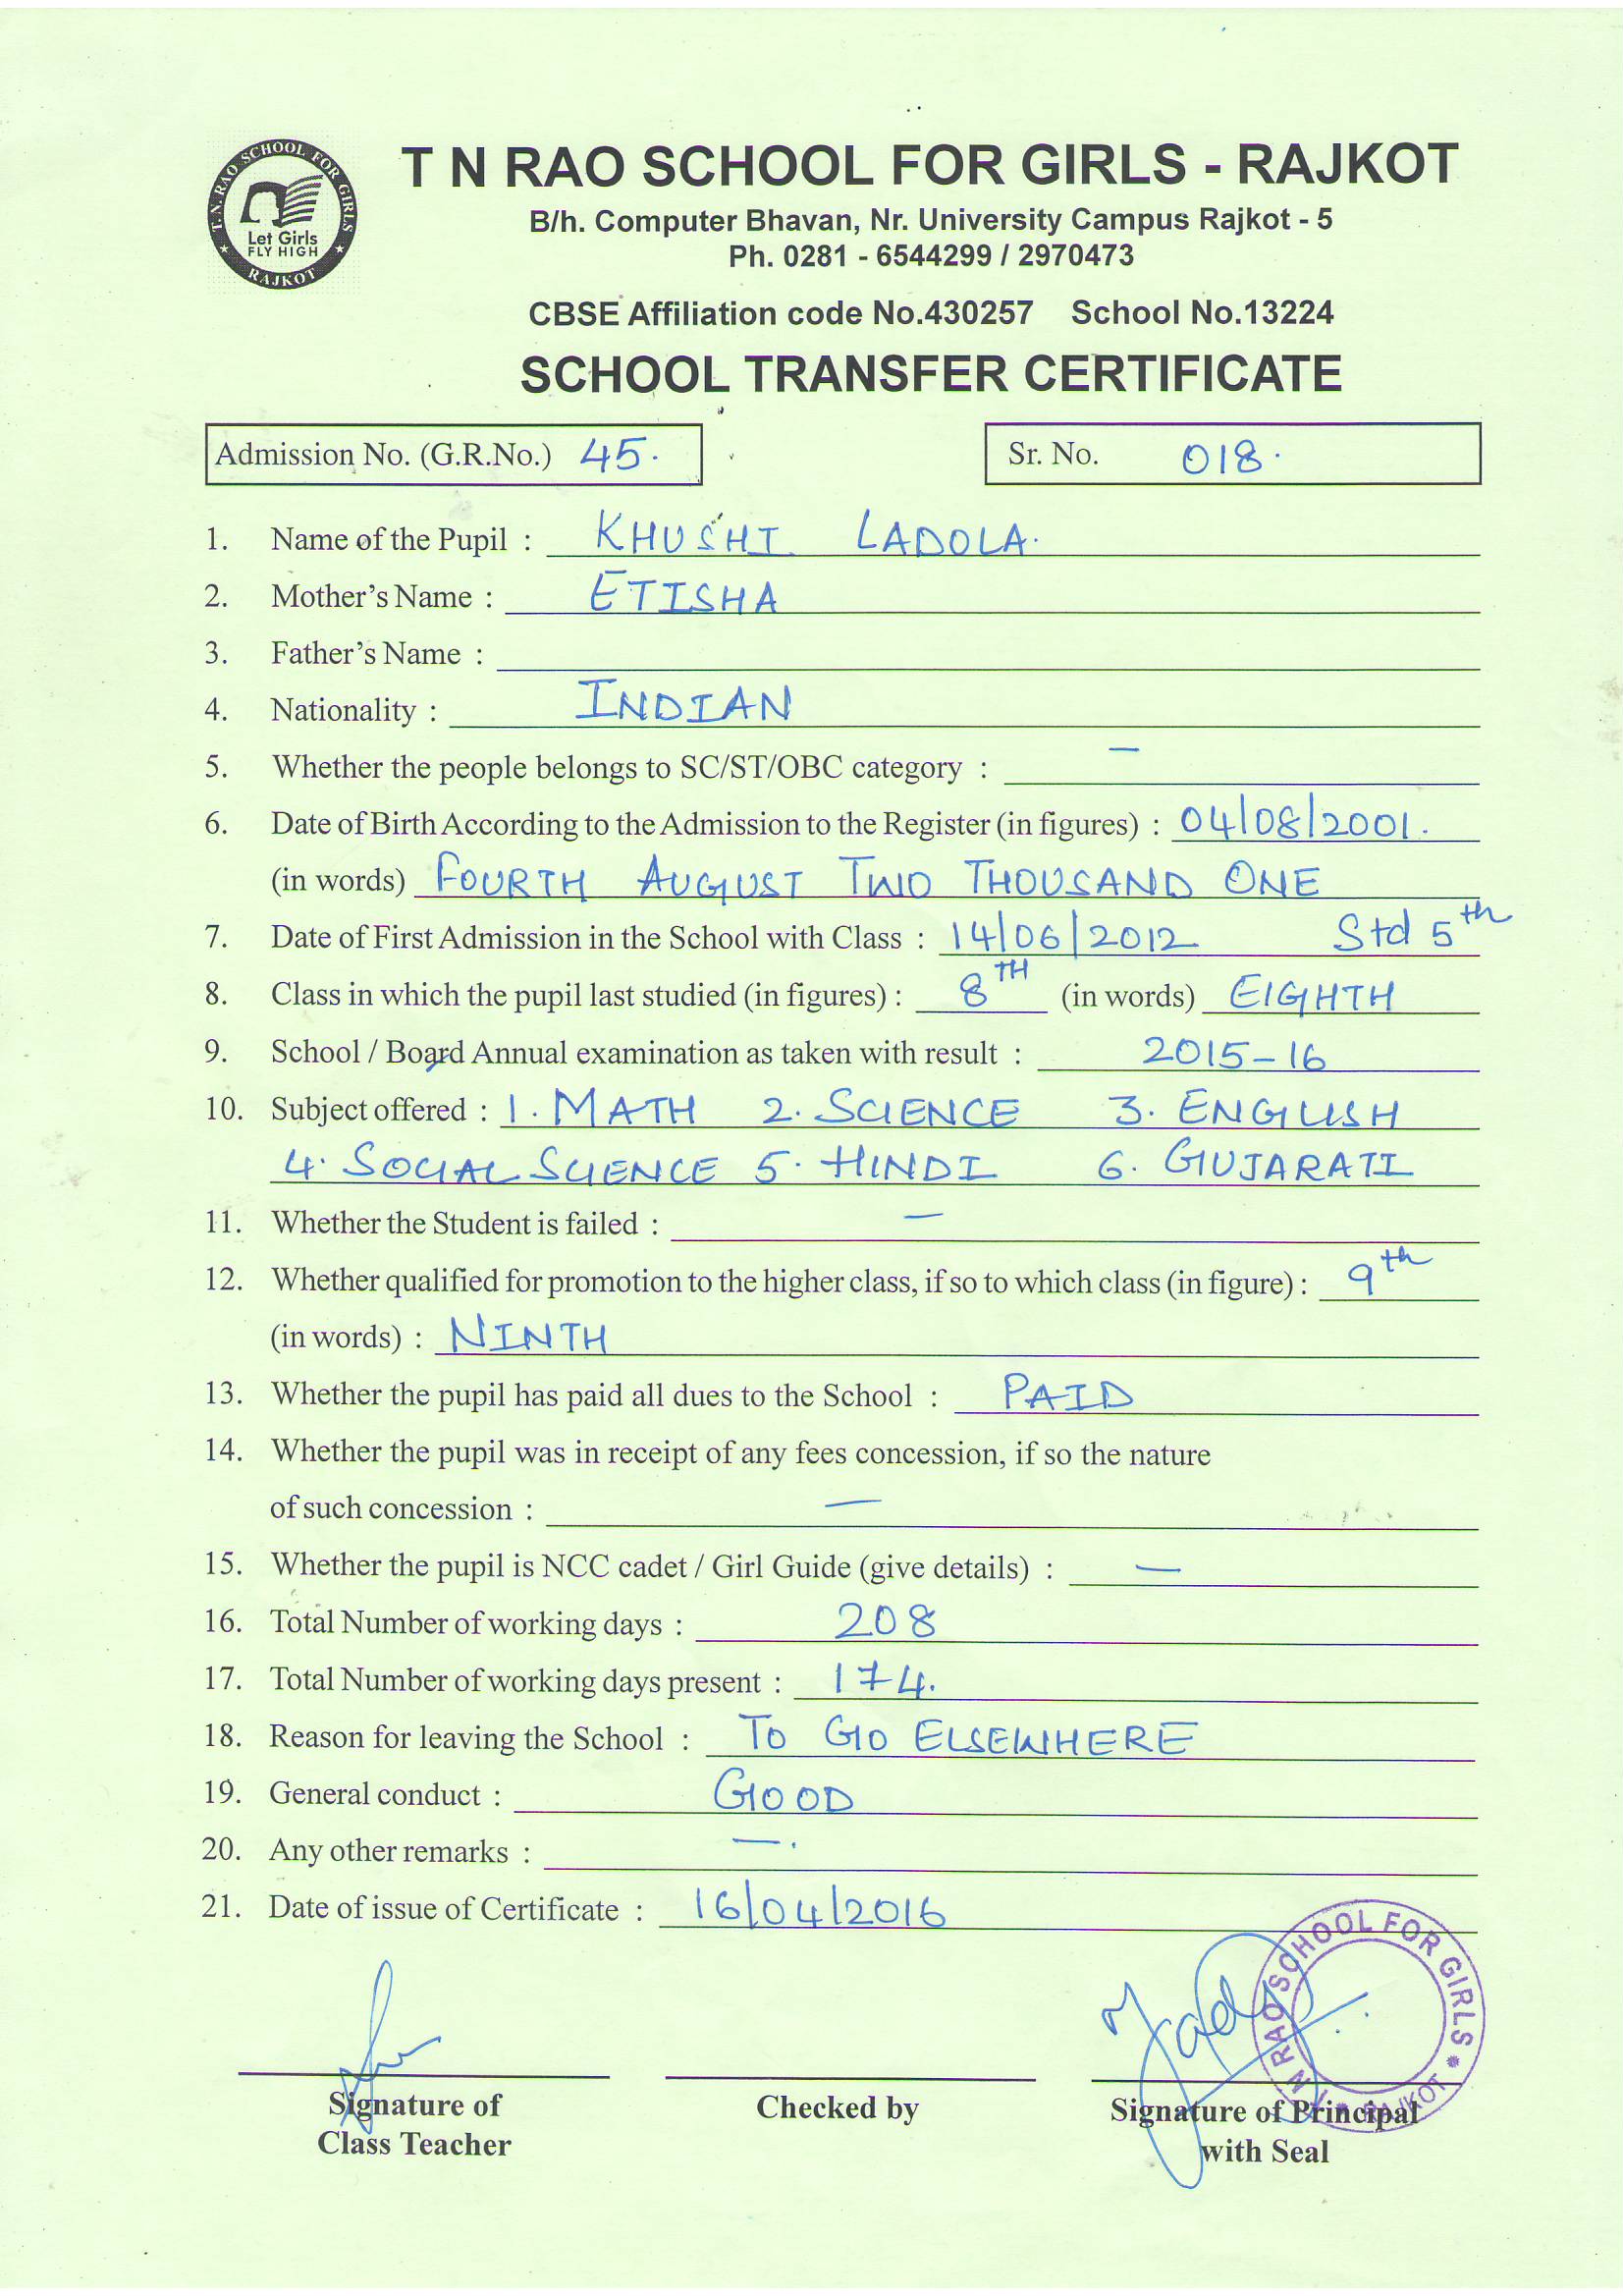 T. N. RAO SCHOOL FOR GIRLS
Let Girls
FLY HIGH
RAJKOT
T N RAO SCHOOL FOR GIRLS - RAJKOT
B/h. Computer Bhavan, Nr. University Campus Rajkot - 5
Ph. 0281 - 6544299 / 2970473
CBSE Affiliation code No.430257 School No.13224
SCHOOL TRANSFER CERTIFICATE
Admission No. (G.R.No.) 45. Sr. No. 018.
1. Name of the Pupil : KHUSHI LADOLA.
2. Mother's Name : ETISHA
3. Father's Name :
4. Nationality : INDIAN
5. Whether the people belongs to SC/ST/OBC category : —
6. Date of Birth According to the Admission to the Register (in figures) : 04/08/2001.
(in words) FOURTH AUGUST TWO THOUSAND ONE
7. Date of First Admission in the School with Class : 14/06/2012 Std 5th
8. Class in which the pupil last studied (in figures) : 8TH (in words) EIGHTH
9. School / Board Annual examination as taken with result : 2015-16
10. Subject offered : 1. MATH 2. SCIENCE 3. ENGLISH
4. SOCIAL SCIENCE 5. HINDI 6. GUJARATI
11. Whether the Student is failed : —
12. Whether qualified for promotion to the higher class, if so to which class (in figure) : 9th
(in words) : NINTH
13. Whether the pupil has paid all dues to the School : PAID
14. Whether the pupil was in receipt of any fees concession, if so the nature
of such concession : —
15. Whether the pupil is NCC cadet / Girl Guide (give details) : —
16. Total Number of working days : 208
17. Total Number of working days present : 174.
18. Reason for leaving the School : TO GO ELSEWHERE
19. General conduct : GOOD
20. Any other remarks : —.
21. Date of issue of Certificate : 16/04/2016
T N RAO SCHOOL FOR GIRLS
RAJKOT
Signature of Checked by Signature of Principal
Class Teacher with Seal